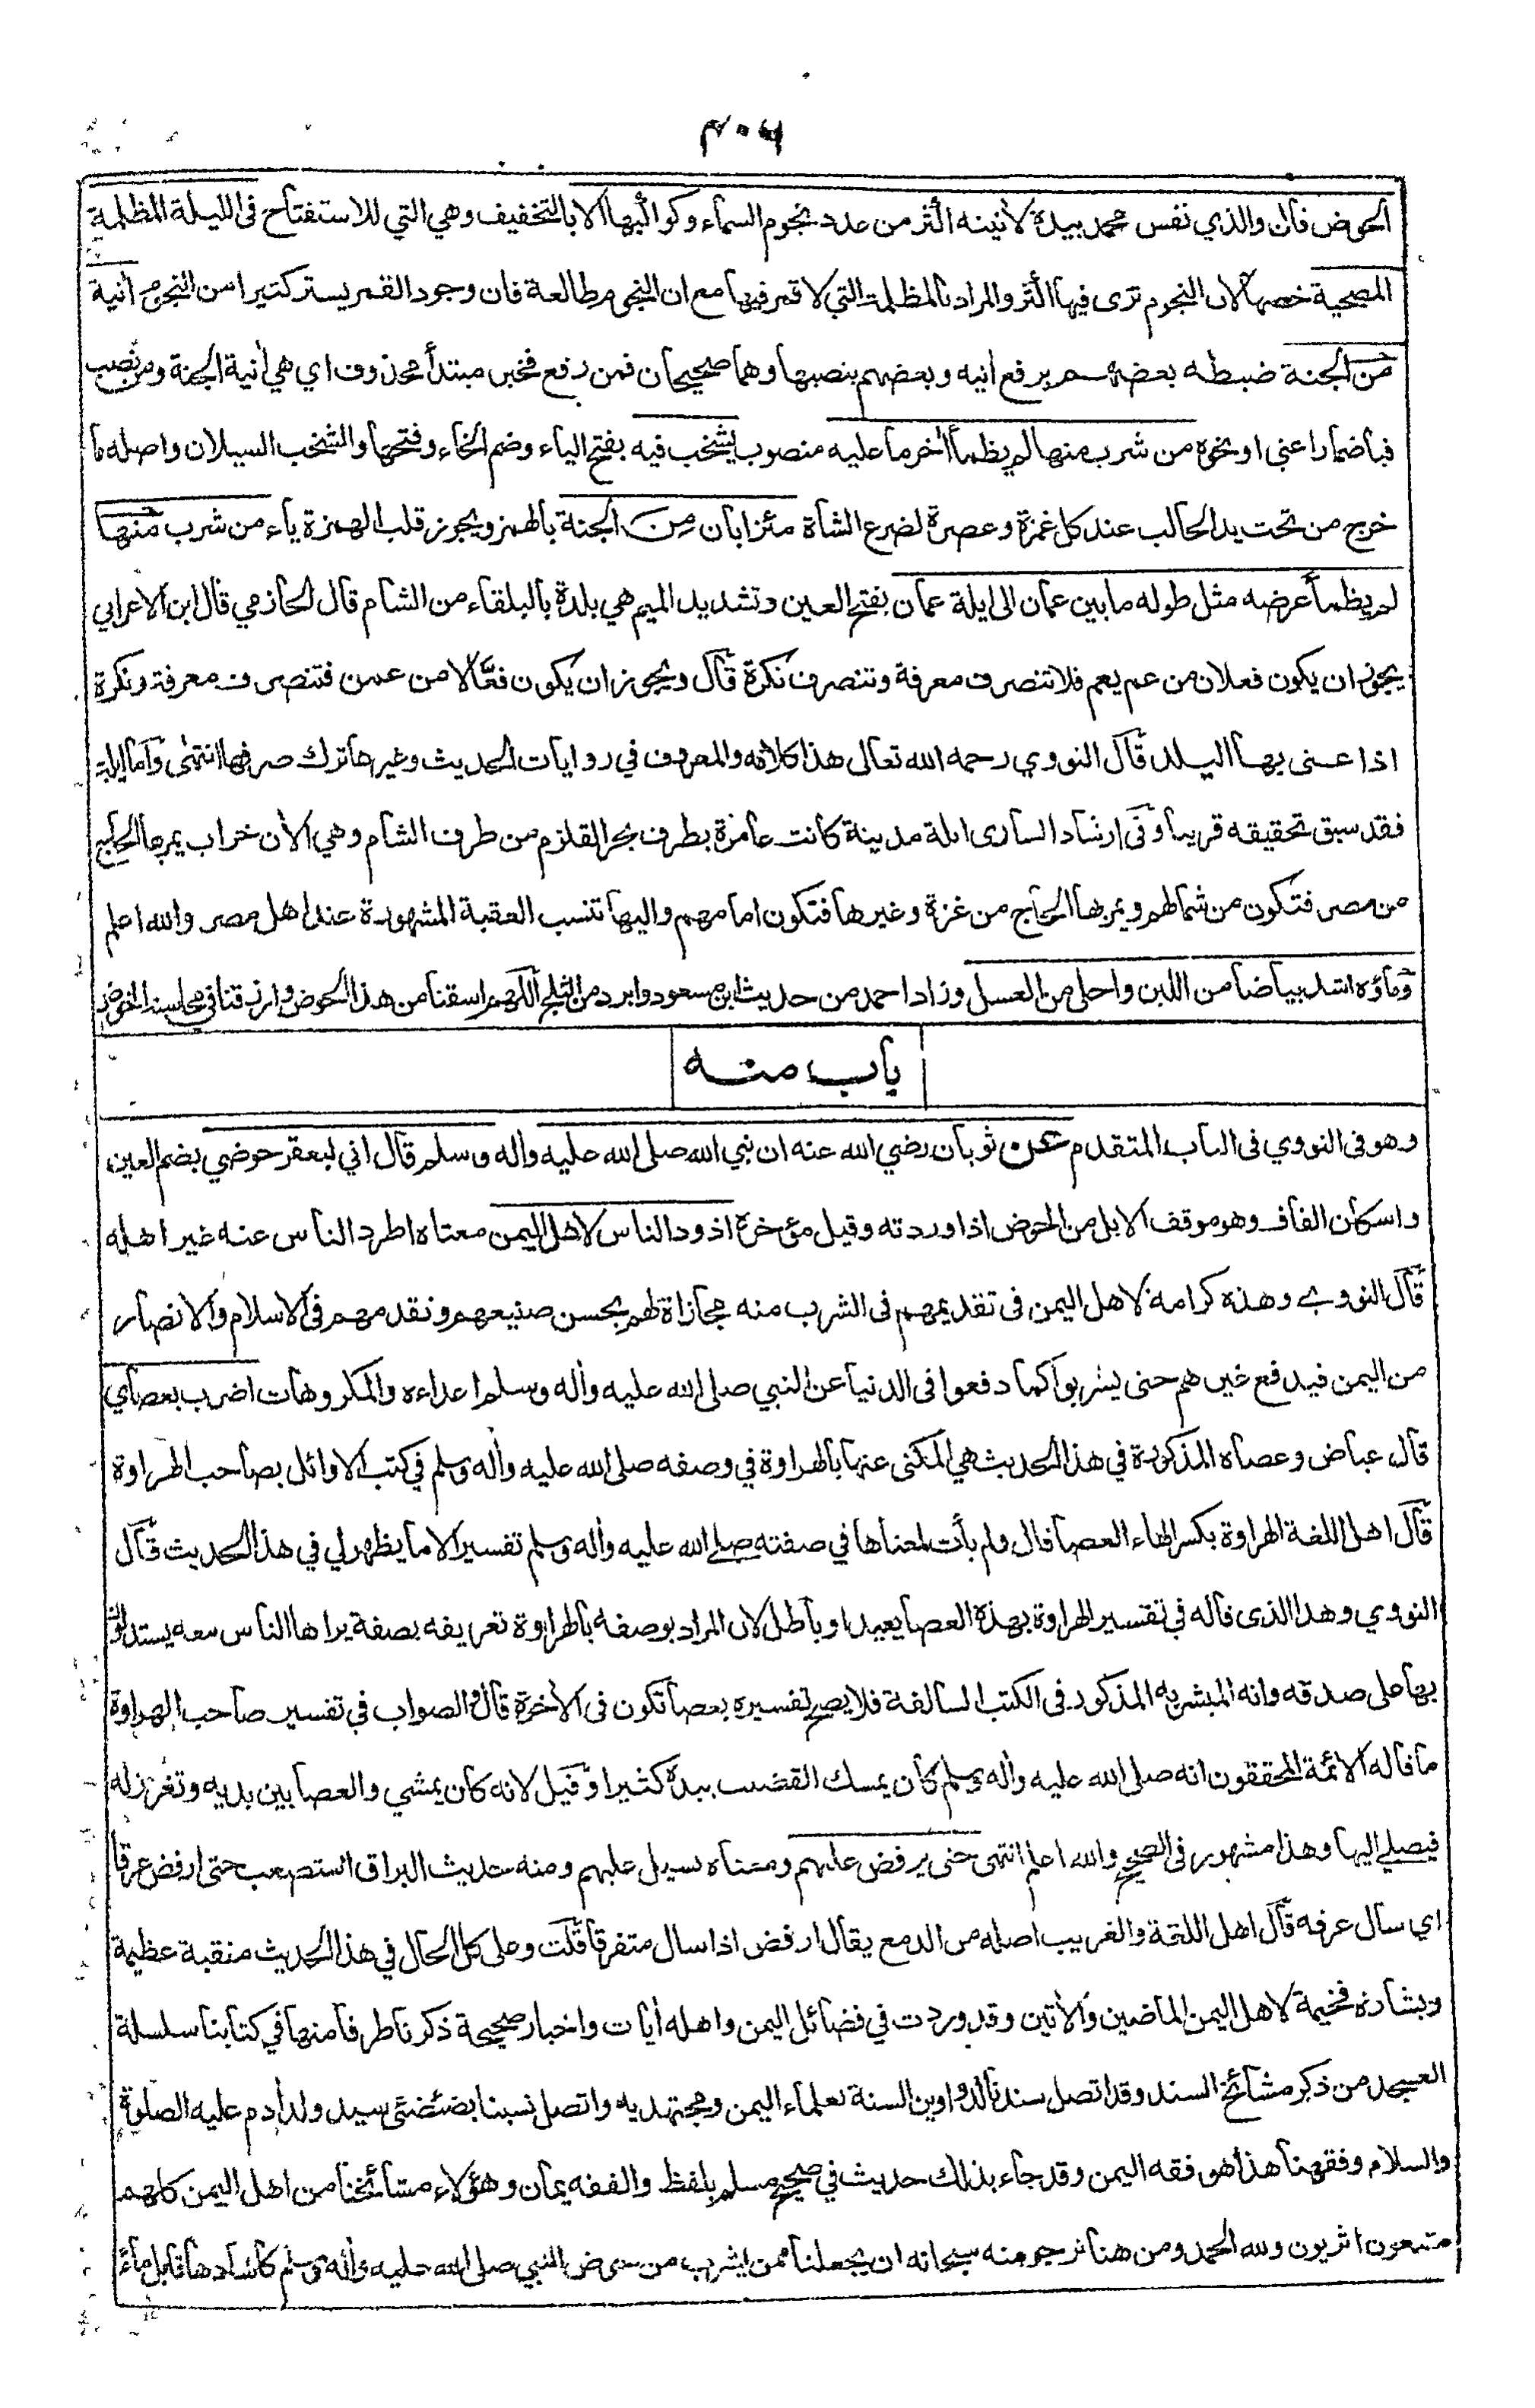 ٤٠٦
الحوض قال والذي نفس محمد بيده لأنيته اكثر من عدد نجوم السماء وكواكبها الا بالتخفيف وهي التي للاستفتاح فى الليلة المظلمة
المصحية خصها لان النجوم ترى فيها اكثر والمراد بالمظلمة التي لا قمر فيها مع ان النجوم طالعة فان وجود القمر يستر كثيرا من النجوم أنية
من الجنة ضبطه بعضهم برفع أنيه وبعضهم بنصبها وهما صحيحان فمن رفع فخبر مبتدأ محذوف اي هي أنية الجنة ومن نصب
فباضمار اعنى او نحوه من شرب منها لم يظمأ أخر ما عليه منصوب يشخب فيه بفتح الياء وضم الخاء وفتحها والشخب السيلان واصله ما
خرج من تحت يد الحالب عند كل غمزة وعصرة لضرع الشاة مئزابان من الجنة بالهمز ويجوز قلب الهمزة ياء من شرب منها
لم يظمأ عرضه مثل طوله ما بين عمان الى ايلة عمان بفتح العين وتشديد الميم هي بلدة بالبلقاء من الشام قال الحازمي قال ابن الاعرابي
يجوز ان يكون فعلان من عم يعم فلا تنصرف معرفة وتنصرف نكرة قال ويجوز ان يكون فعّالا من عمن فتنصرف معرفة ونكرة
اذا عنى بها البلد قال النووي رحمه الله تعالى هذا كلامه والمعروف في روايات الحديث وغيرها ترك صرفها انتهى واما ايلة
فقد سبق تحقيقه قريبا وفى ارشاد السارى ايلة مدينة كانت عامرة بطرف بحر القلزم من طرف الشام وهي الأن خراب يمر بها الحاج
من مصر فتكون من شمالهم ويمر بها الحاج من غزة وغيرها فتكون امامهم واليها تنسب العقبة المشهورة عند اهل مصر والله اعلم
وماؤه اشد بياضا من اللبن واحلى من العسل وزاد احمد من حديث ابن مسعود وابرد من الثلج اللهم اسقنا من هذا الحوض وارزقنا في مجلسنا الخوض
باب منه
وهو فى النووي فى الباب المتقدم عن ثوبان رضي الله عنه ان نبي الله صلى الله عليه واله وسلم قال اني لبعقر حوضي بضم العين
واسكان القاف وهو موقف الابل من الحوض اذا وردته وقيل مؤخره اذود الناس لاهل اليمن معناه اطرد الناس عنه غير اهله
قال النووي وهذه كرامة لاهل اليمن فى تقديمهم فى الشرب منه مجازاة لهم بحسن صنيعهم وتقدمهم فى الاسلام والانصار
من اليمن فيدفع غيرهم حتى يشربوا كما دفعوا فى الدنيا عن النبي صلى الله عليه وأله وسلم اعداءه والمكروهات اضرب بعصاي
قال عياض وعصاه المذكورة في هذا الحديث هي المكنى عنها بالهراوة في وصفه صلى الله عليه وأله وسلم في كتب الاوائل بصاحب الهراوة
قال اهل اللغة الهراوة بكسر الهاء العصا قال ولم يأت لمعناها في صفته صلى الله عليه وأله وسلم تفسير الا ما يظهر لي في هذا الحديث قال
النووي وهذا الذى قاله في تفسير الهراوة بهذه العصا بعيد او باطل لان المراد بوصفه بالهراوة تعريفه بصفة يراها الناس معه يستدلون
بها على صدقه وانه المبشر به المذكور فى الكتب السالفة فلا يصح تفسيره بعصا تكون فى الأخرة قال والصواب في تفسير صاحب الهراوة
ما قاله الائمة المحققون انه صلى الله عليه وأله وسلم كان يمسك القضيب بيده كثيرا وقيل لانه كان يمشي والعصا بين يديه وتغرز له
فيصلي اليها وهذا مشهور فى الصحيح والله اعلم انتهى حتى يرفض عليهم ومعناه يسيل عليهم ومنه حديث البراق استصعب حتى ارفض عرقا
اي سال عرقه قال اهل اللغة والغريب اصله من الدمع يقال ارفض اذا سال متفرقا قلت وعلى كل الحال في هذا الحديث منقبة عظيمة
وبشارة فخيمة لاهل اليمن الماضين والأتين وقد وردت في فضائل اليمن واهله أيات واخبار صحيحة ذكرنا طرفا منها في كتابنا سلسلة
العسجد من ذكر مشائخ السند وقد اتصل سندنا لدواوين السنة بعلماء اليمن ومجتهديه واتصل نسبنا بضئضئي سيد ولد أدم عليه الصلوة
والسلام وفقهنا هذا هو فقه اليمن وقد جاء بذلك حديث في صحيح مسلم بلفظ والفقه يمان وهؤلاء مشائخنا من اهل اليمن كلهم
متبعون اثريون ولله الحمد ومن هنا نرجو منه سبحانه ان يجعلنا ممن يشرب من حوض النبي صلى الله عليه وأله وسلم كأسا دهاقا بل ماءً